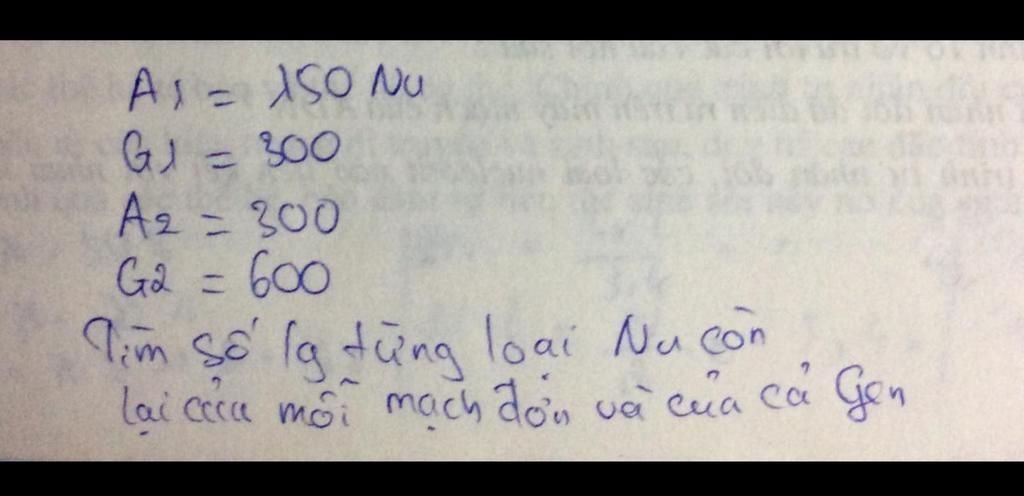 A1 = 150 Nu
G1 = 300
A2 = 300
G2 = 600
Tìm số lg từng loại Nu còn
lại của mỗi mạch đơn và của cả Gen